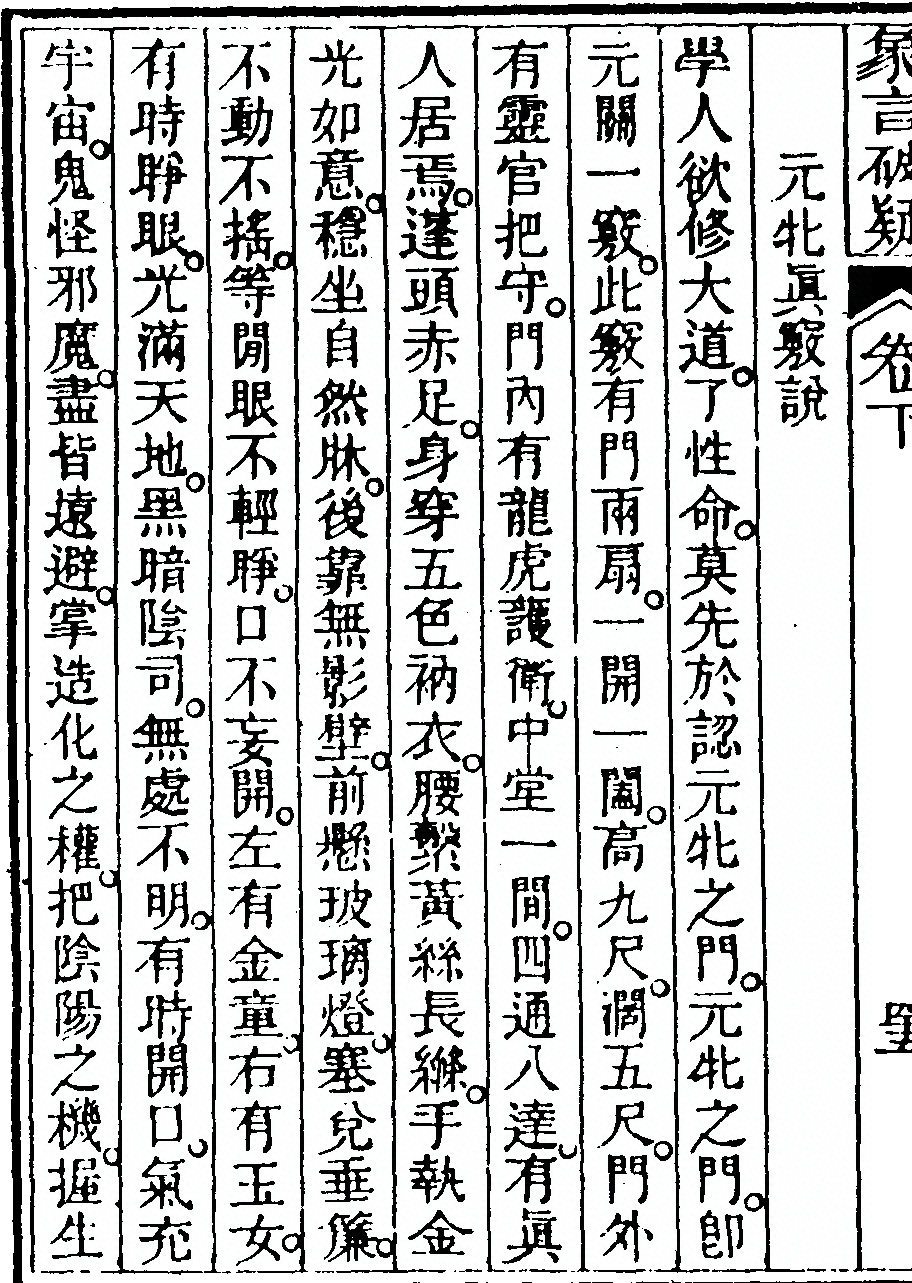 象言破疑 卷下
元牝眞竅說
學人欲修大道。了性命。莫先於認元牝之門。元牝之門。卽
元關一竅。此竅有門兩扇。一開一闔。高九尺。濶五尺。門外
有靈官把守。門內有龍虎護衛。中堂一間。四通八達。有眞
人居焉。蓬頭赤足。身穿五色衲衣。腰繫黃絲長縧。手執金
光如意。穩坐自然牀。後靠無影壁。前懸玻璃燈。塞兌垂簾。
不動不搖。等閒眼不輕睜。口不妄開。左有金童。右有玉女。
有時睜眼。光滿天地。黑暗陰司。無處不明。有時開口。氣充
宇宙。鬼怪邪魔。盡皆遠避。掌造化之權。把陰陽之機。握生